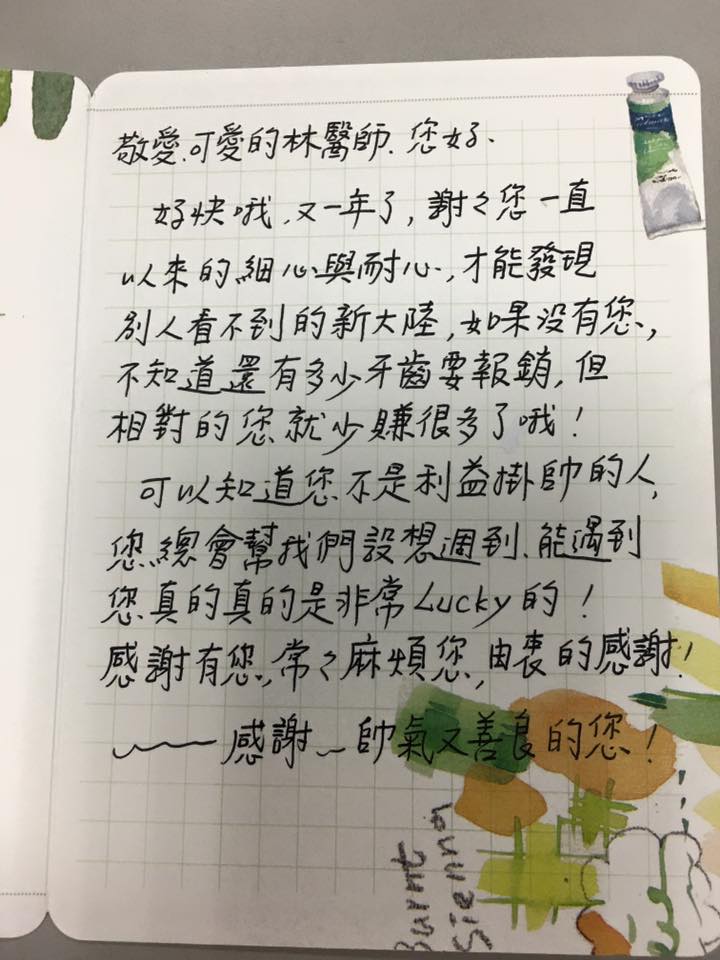 敬愛.可愛的林醫師.您好.
好快哦,又一年了,謝々您一直
以來的細心與耐心,才能發現
別人看不到的新大陸,如果沒有您,
不知道還有多少牙齒要報銷,但
相對的您就少賺很多了哦!
可以知道您不是利益掛帥的人,
您總會幫我們設想週到、能遇到
您真的真的是非常Lucky的!
感謝有您,常々麻煩您,由衷的感謝!
感謝~帥氣又善良的您!
Burnt
Sienna